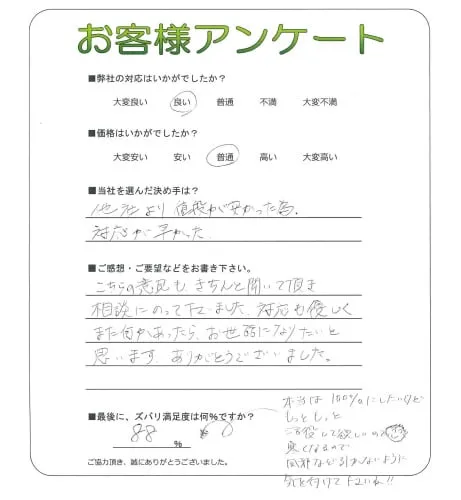 お客様アンケート
■弊社の対応はいかがでしたか?
大変良い 良い 普通 不満 大変不満
■価格はいかがでしたか?
大変安い 安い 普通 高い 大変高い
■当社を選んだ決め手は?
他社より値段が安かった為.
対応が早かった
■ご感想・ご要望などをお書き下さい。
こちらの意見もきちんと聞いて頂き
相談にのって下さいました、対応も優しく
また何かあったら、お世話になりたいと
思います、ありがとうございました。
■最後に、ズバリ満足度は何%ですか?
88
%
本当は100%にしたいけど
もっともっと
活役して欲しいの
無くなるので
ないように
気を付けて下さいね!!
ご協力頂き、誠にありがとうございました。